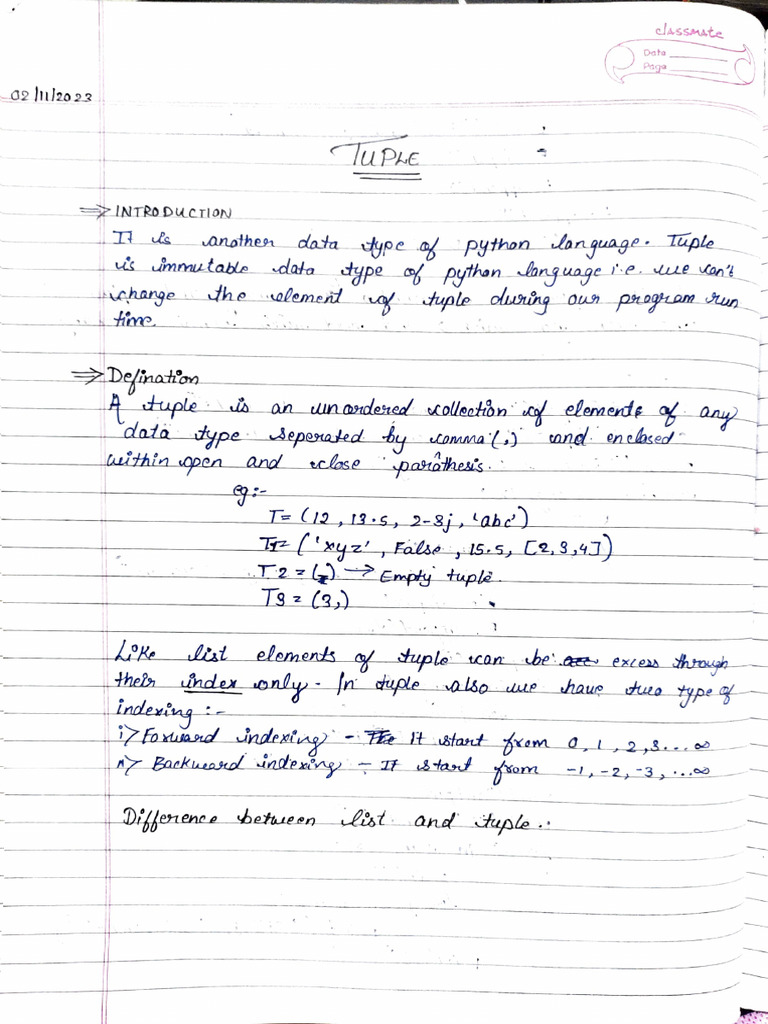 classmate
Date
Page
02/11/2023
TUPLE
⇒ INTRODUCTION
It is another data type of python language. Tuple
is immutable data type of python language i.e. we can't
change the element of tuple during our program run
time.
⇒ Defination
A tuple is an unordered collection of elements of any
data type seperated by comma(,) and enclosed
within open and close parathesis.
eg:-
T = (12, 13.5, 2-3j, 'abc')
T1 = ('xyz', False, 15.5, [2,3,4])
T2 = ( ) → Empty tuple.
T3 = (3,)
Like list elements of tuple can be excess through
their index only. In tuple also we have two type of
indexing :-
i) Forward indexing - It start from 0, 1, 2, 3...∞
ii) Backward indexing - It start from -1, -2, -3, ...∞
Difference between list and tuple.: